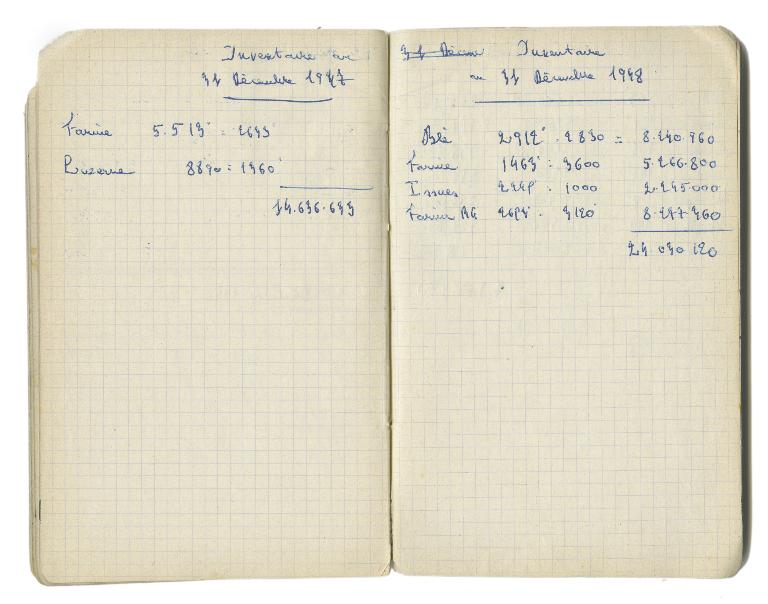 Inventaire au
31 Décembre 1947
Farine 5.513
Luzerne 8890 =
31 Décem Inventaire
au 31 Décembre 1948
Blé 2912 . 2830 = 8.240.960
Farine 1463 : 3600 5.266.800
Issues 2245 . 1000 2.245.000
Farine RG 2653 . 3120 8.277.360
24 030 120